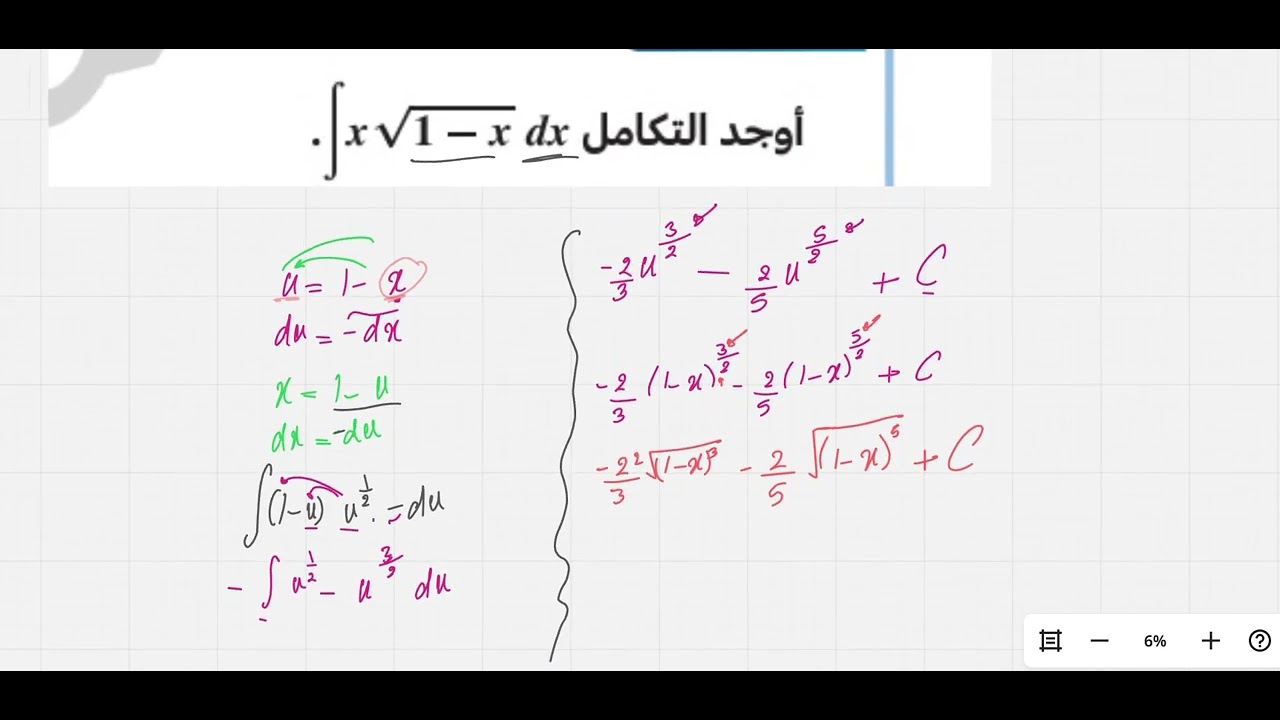 أوجد التكامل ∫x√(1 − x) dx .
u = 1 - x
du = -dx
x = 1 - u
dx = -du
∫(1-u) u^(1/2) . -du
- ∫ u^(1/2) - u^(3/2) du
-2/3 u^(3/2) - 2/5 u^(5/2) + C
-2/3 (1-x)^(3/2) - 2/5 (1-x)^(5/2) + C
-2/3 ²√(1-x)^3 - 2/5 √(1-x)^5 + C
6%